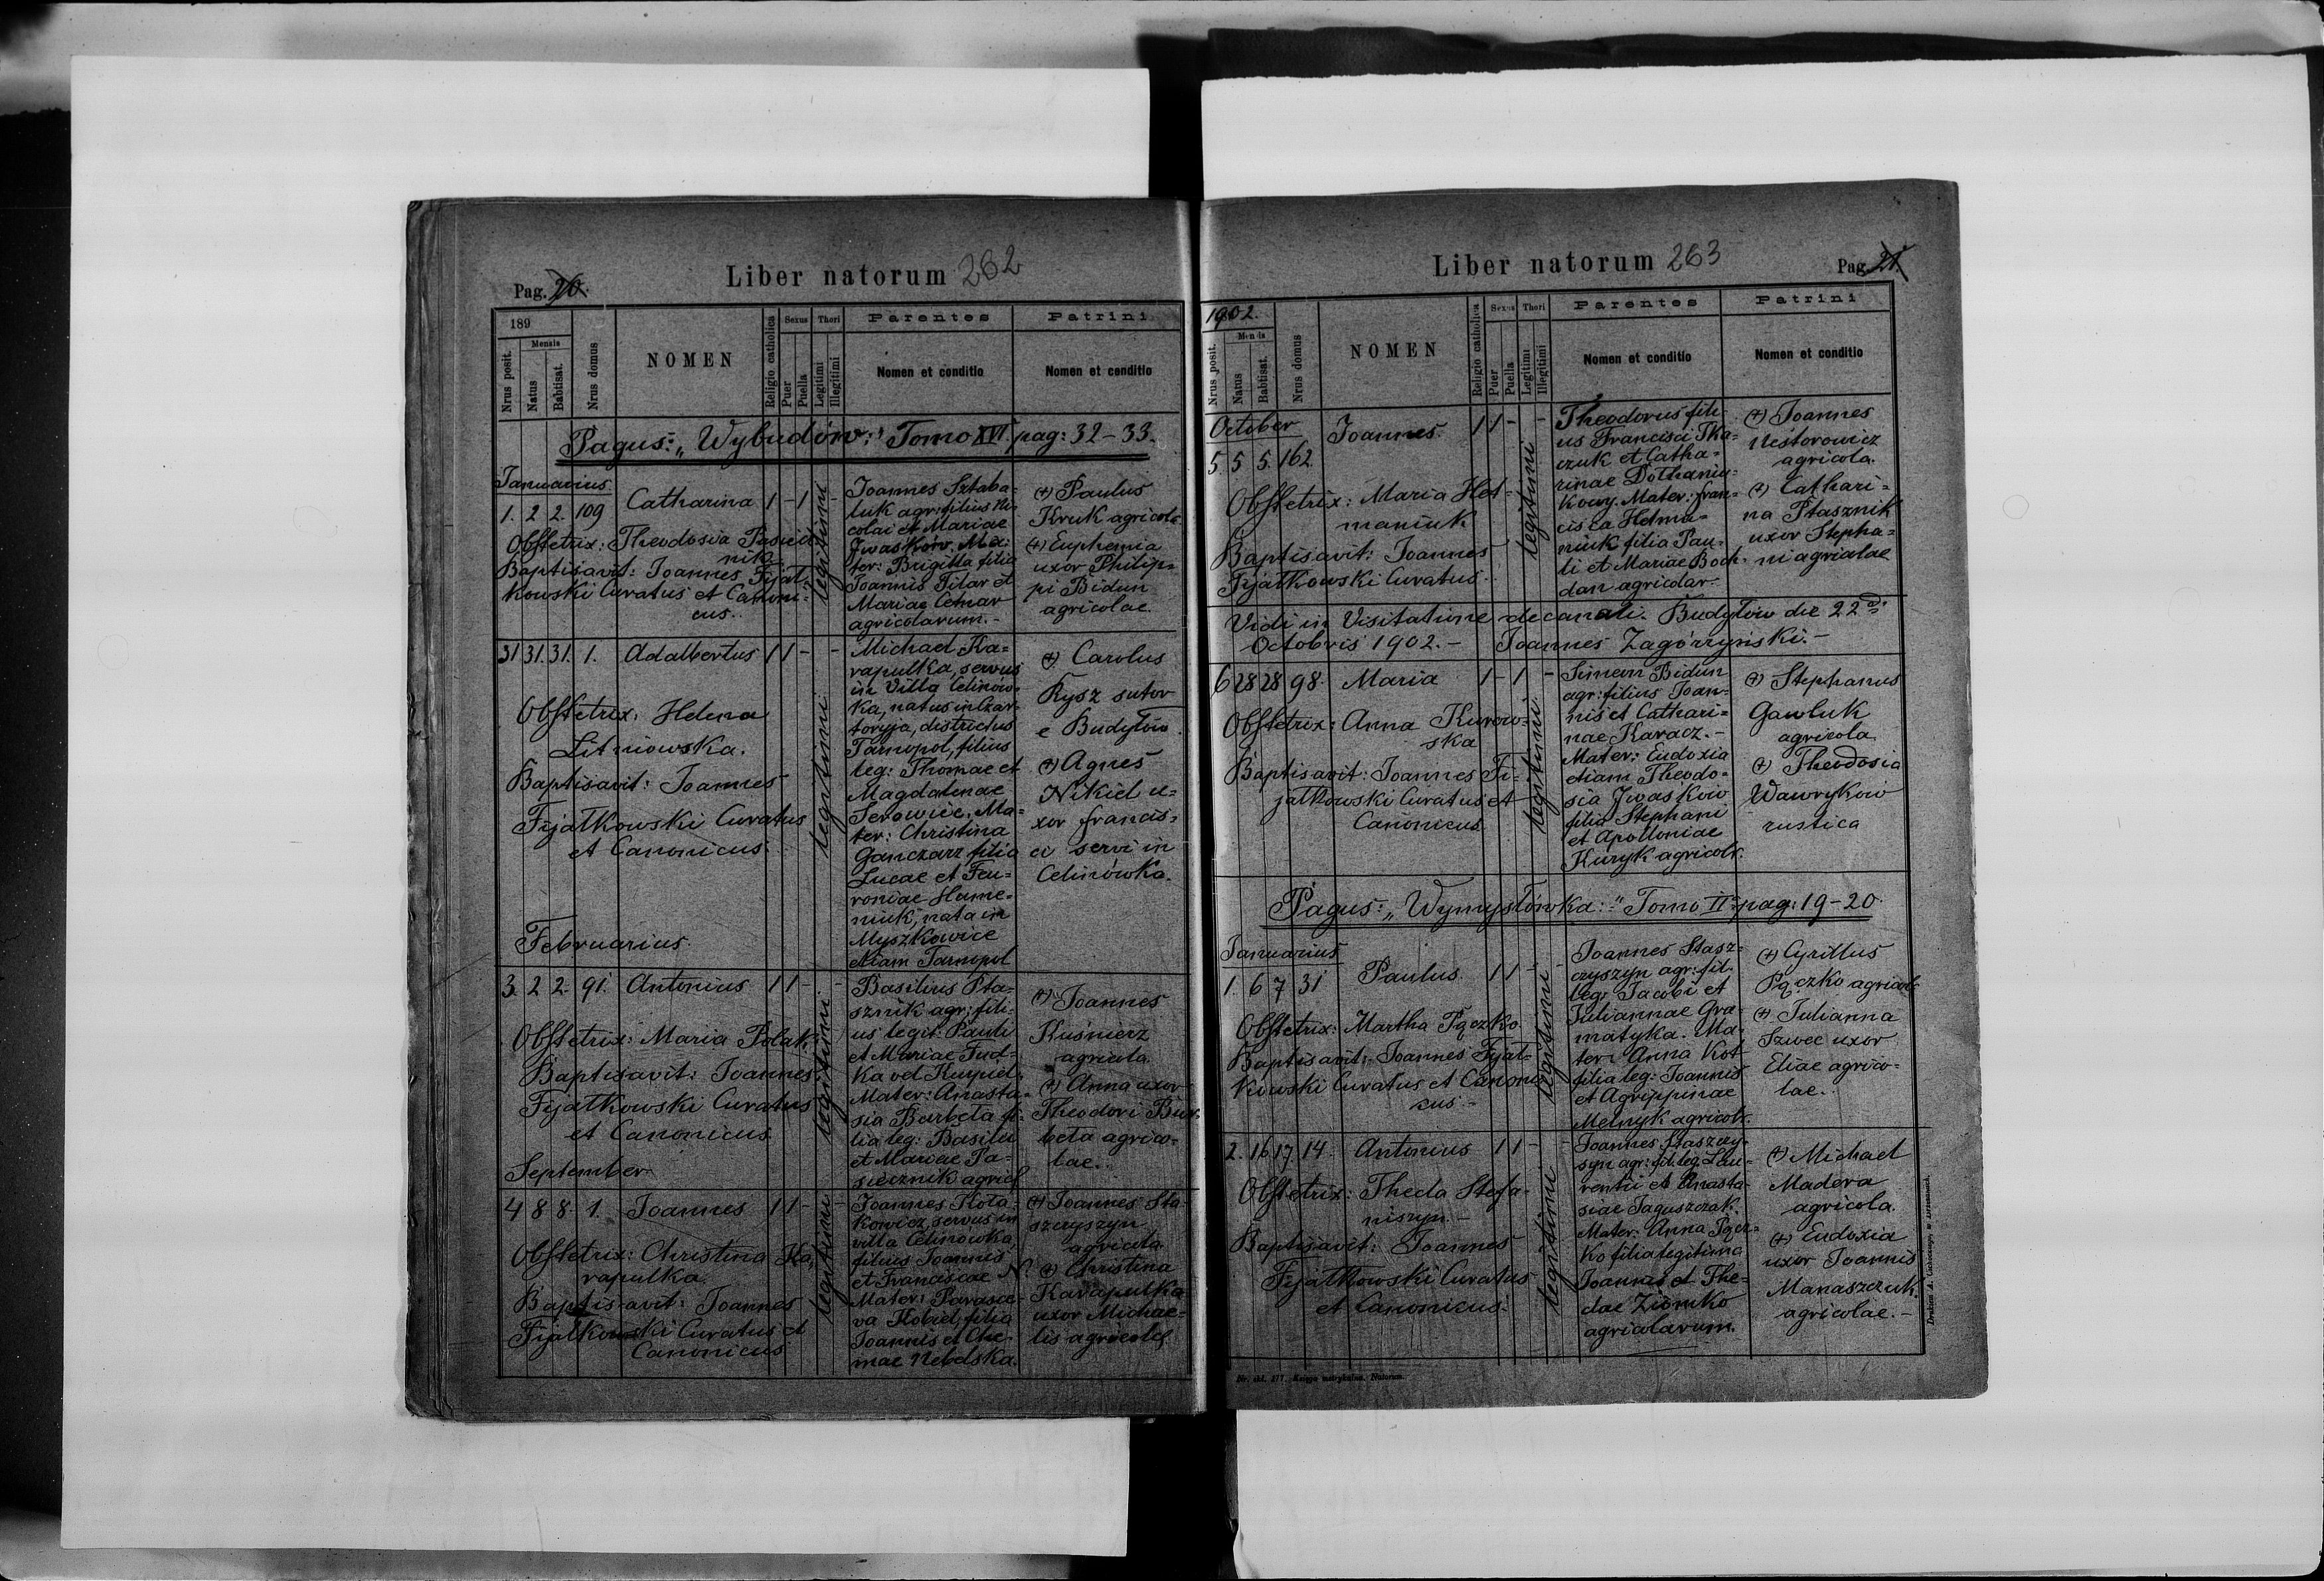 Liber natorum 262
Pag. 20.
189
Nrus posit.
Mensis
Natus
Babtisat.
Nrus domus
NOMEN
Religio catholica
Sexus
Puer
Puella
Thori
Legitimi
Illegitimi
Parentes
Nomen et conditio
Patrini
Nomen et conditio
Pagus: „Wybudów:" Tomo XVI. pag: 32-33.
Januarius
1. 2 2. 109 Catharina 1 - 1 -
legitimi
Obstetrix: Theodosia Pasiecz
nik
Baptisavit: Joannes Fijał-
kowski Curatus et Canoni-
cus.
Joannes Sztaba-
luk agr: filius Ni-
colai et Mariae
Jwasków. Ma-
ter: Brigitta filia
Joannis Filar et
Mariae Cetnar
agricolarum.-
(+) Paulus
Kruk agricola
(+) Euphemia
uxor Philip-
pi Bidun
agricolae.
31 31. 31. 1. Adalbertus 1 1 - -
legitimi
Obstetrix: Helena
Litniowska.
Baptisavit: Joannes
Fijałkowski Curatus
et Canonicus.
Michael Ka-
rapulka, servus
in Villa Celinów-
ka, natus in Czar-
toryja, districtus
Tarnopol, filius
leg: Thomae et
Magdalenae
Serowice. Ma-
ter: Christina
Ganczarz filia
Lucae et Feu-
roniae Hume-
niuk, nata in
Myszkowice
etiam Tarnopol
(+) Carolus
Kysz sutor
e Budyłów.
(+) Agnes
Nikiel u-
xor francis-
ci servi in
Celinówka.
Februarius.
3. 2 2. 91. Antonius 1 1 - -
legitimi
Obstetrix: Maria Polak
Baptisavit: Joannes
Fijałkowski Curatus
et Canonicus
Basilius Pta-
sznik agr: fili-
us legit: Pauli
et Mariae Fud-
ka vel Kurpiel.
Mater: Anasta-
sia Barbeta fi-
lia leg: Basilii
et Mariae Pa-
siecznik agricol
(+) Joannes
Kuśnierz
agricola.
(+) Anna uxor
Theodori Bar-
beta agrico-
lae.
September
4 8 8 1. Joannes 1 1 - -
legitimi
Obstetrix: Christina Ka-
rapulka.
Baptisavit: Joannes
Fijałkowski Curatus et
Canonicus
Joannes Koła-
kowicz, servus in
villa Celinówka
filius Joannis
et Franciscae N.
Mater: Parasce-
va Kobiel, filia
Joannis et
mae Nebelska.
(+) Joannes Sta-
szczyszyn
agricola
(+) Christina
Karapulka
uxor Michae-
lis agricolae
Liber natorum 263
Pag 21.
1902.
Nrus posit.
Mensis
Natus
Babtisat.
Nrus domus
NOMEN
Religio catholica
Sexus
Puer
Puella
Thori
Legitimi
Illegitimi
Parentes
Nomen et conditio
Patrini
Nomen et conditio
October
5. 5 5. 162. Joannes. 1 1 - -
legitimi
Obstetrix: Maria Het-
maniuk
Baptisavit: Joannes
Fijałkowski Curatus.
Theodorus fili-
us Francisci Tka-
czuk et Catha-
rinae Dołhaniu-
kowy. Mater: fran-
cisca Hetma-
niuk filia Pau-
li et Mariae Boh-
dan agricolar.
(+) Joannes
Nestorowicz
agricola.
(+) Cathari-
na Ptasznik
uxor Stepha-
ni agricolae
Vidi in Visitatione decanali. Budyłów die 22
Octobris 1902.- Joannes Zagórzyński.-
6 28 28 98. Maria 1 - 1 -
legitimi
Obstetrix: Anna Kurow-
ska
Baptisavit: Joannes Fi-
jałkowski Curatus et
Canonicus
Simeon Bidun
agr: filius Joan-
nis et Cathari-
nae Karacz.-
Mater: Eudoxia
etiam Theodo-
sia Jwasków
filia Stephani
et Apolloniae
Kuryk agricolr.
(+) Stephanus
Gawluk
agricola.
(+) Theodosia
Wawryków
rustica
Pagus: „Wymysłówka:" Tomo II pag: 19-20.
Januarius
1. 6 7 31 Paulus. 1 1 - -
legitimi
Obstetrix: Martha Pączko
Baptisavit: Joannes Fijał-
kowski Curatus et Canoni-
cus.-
Joannes Stasz-
czyszyn agr: fil.
leg: Jacobi et
Juliannae Gra-
matyka. Ma-
ter: Anna Kot
filia leg: Joannis
et Agrippinae
Melnyk agricolr.
(+) Cyrillus
Pączko agricola
(+) Julianna
Szwec uxor
Eliae agrico-
lae.
2. 16 17 14. Antonius 1 1 - -
legitimi
Obstetrix: Thecla Stefa-
niszyn.-
Baptisavit: Joannes
Fijałkowski Curatus
et Canonicus.
Joannes Staszczy-
szyn agr: fil. leg. Lau-
rentii et Anasta-
siae Jaguszczak.
Mater: Anna Pącz-
ko filia legitima
Joannis et The-
clae Ziomko
agricolarum.
(+) Michael
Madera
agricola.
(+) Eudoxia
uxor Joannis
Manaszczuk
agricolae.-
Nr. skł. 277. Księga metrykalna. Natorum.